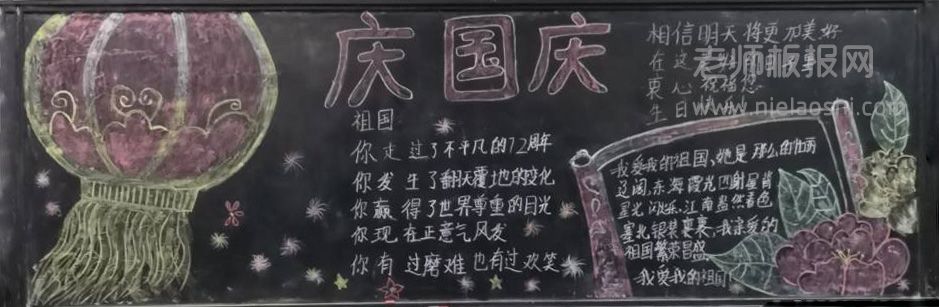 庆国庆
祖国
你走过了不平凡的72周年
你发生了翻天覆地的变化
你赢得了世界尊重的目光
你现在正意气风发
你有过磨难也有过欢笑
相信明天将更加美好
在这
衷心祝福您
生日
老师板报网
www.nielaoshi.com
我爱我的祖国、她是那么的壮丽
辽阔,东海霞光四射星肖
星光闪烁、江南盎然春色
塞北银装裹裹、我亲爱的
祖国繁荣昌盛
我爱我的祖国!